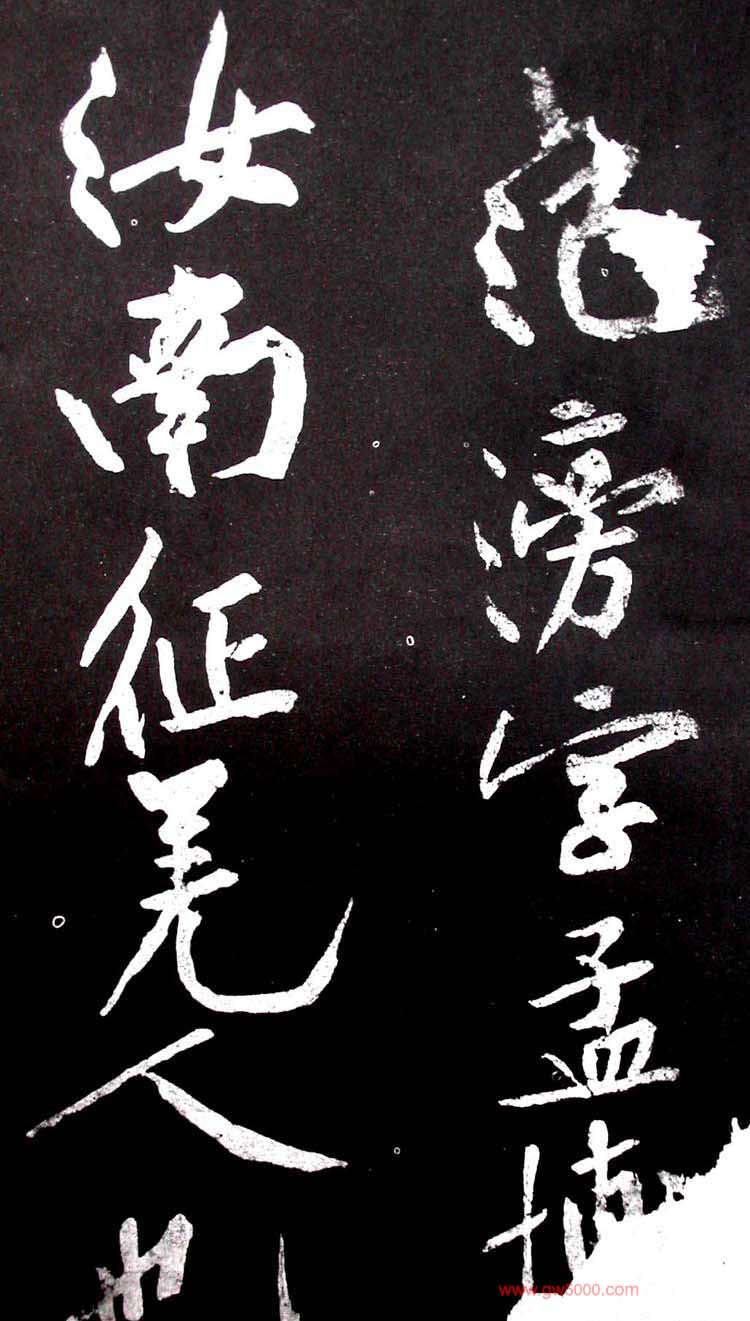 范滂字孟博
汝南征羌人也
www.gw5000.com